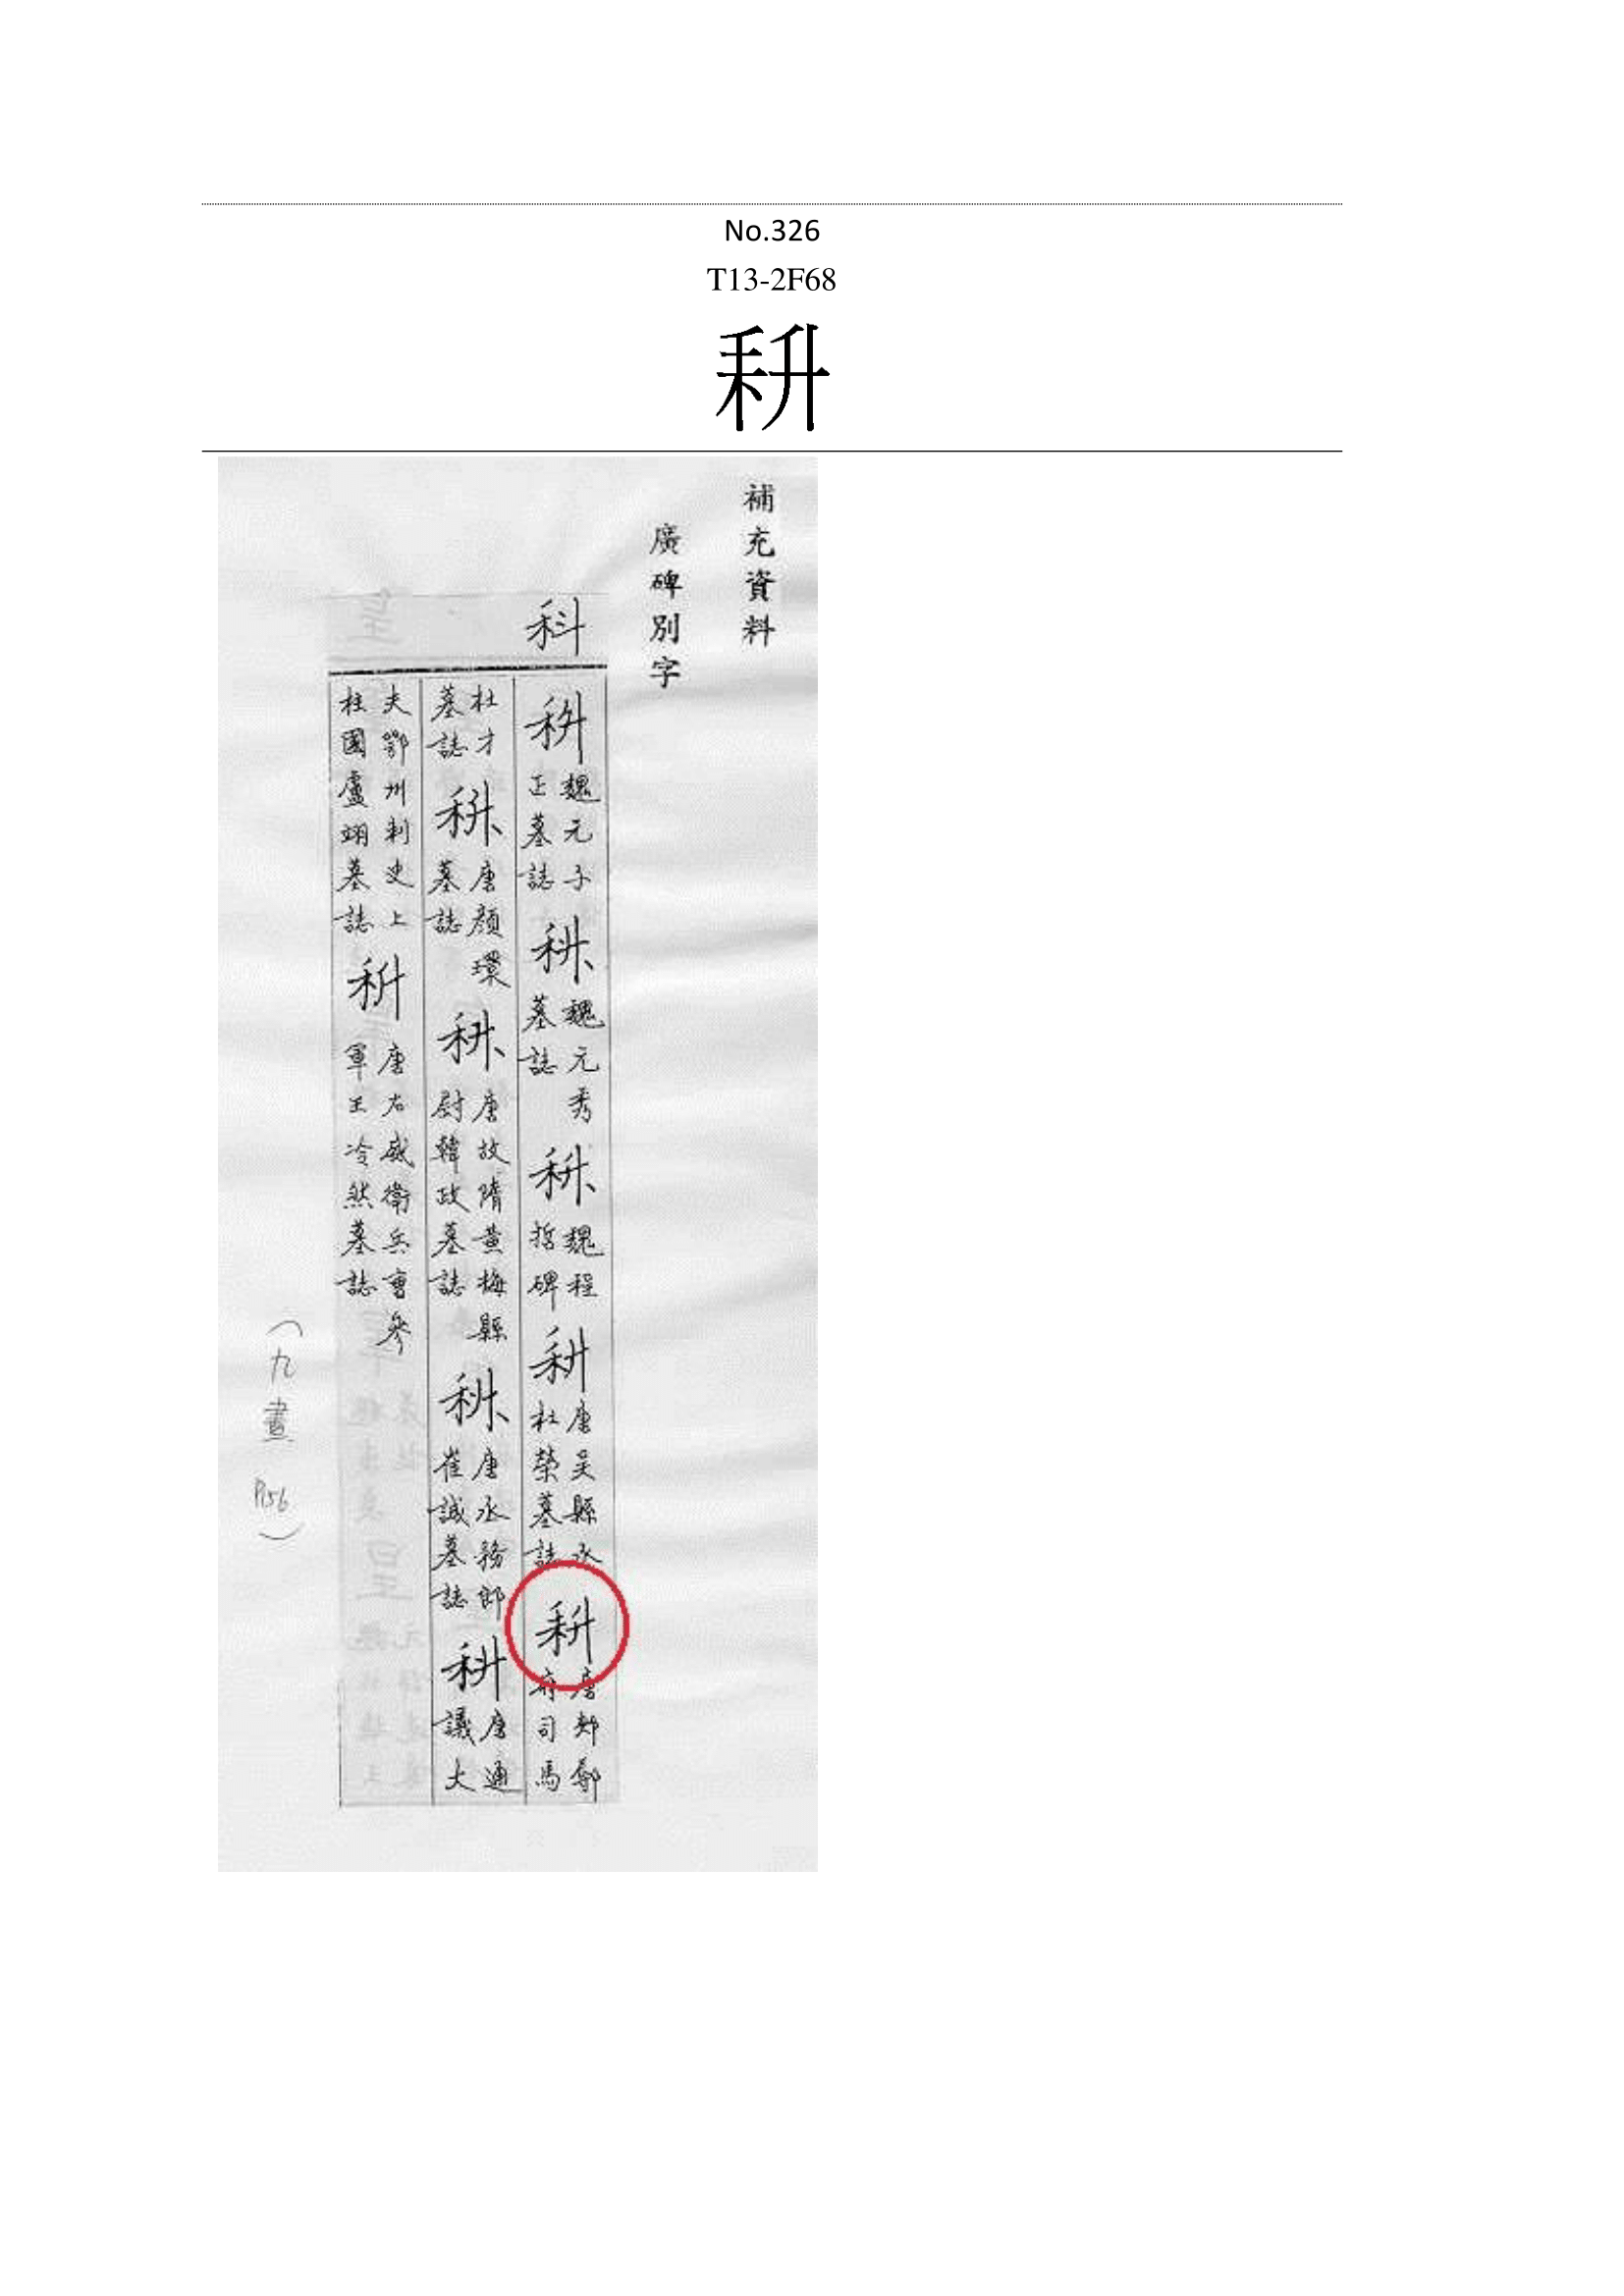 No.326
T13-2F68
補充資料
廣碑別字
科
魏元子正墓誌
魏元秀墓誌
魏程哲碑
唐吴縣丞杜榮墓誌
唐郟鄏府司馬
杜才墓誌
唐顏瓌墓誌
唐故隋黄梅縣尉韓政墓誌
唐丞務郎崔誠墓誌
唐通議大
夫鄂州刺史上柱國盧翊墓誌
唐右威衛兵曹參軍王冷然墓誌
(九畫 P156)